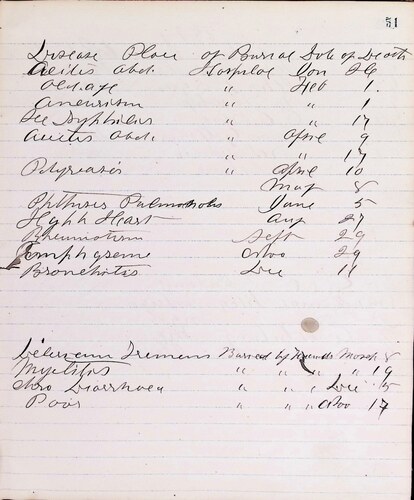 51
Disease Place of Burial Date of Death
Acitis Abd. Hospital Jan 26
Old age " Feb 1
Aneurism " " 1
Syphilis " " 17
Acitis Abd. " April 9
" " 17
" April 10
May 8
Phthisis Pulmonalis June 5
Hyph Heart Aug 27
Rheumatism Sept 29
Emphyseme Nov 29
Bronchitis Dec 11
Delerium Tremens Buried by Friends March 8
Myelitis " " " " 19
Chro Diarrhoea " " " Dec 15
" " " Nov 17